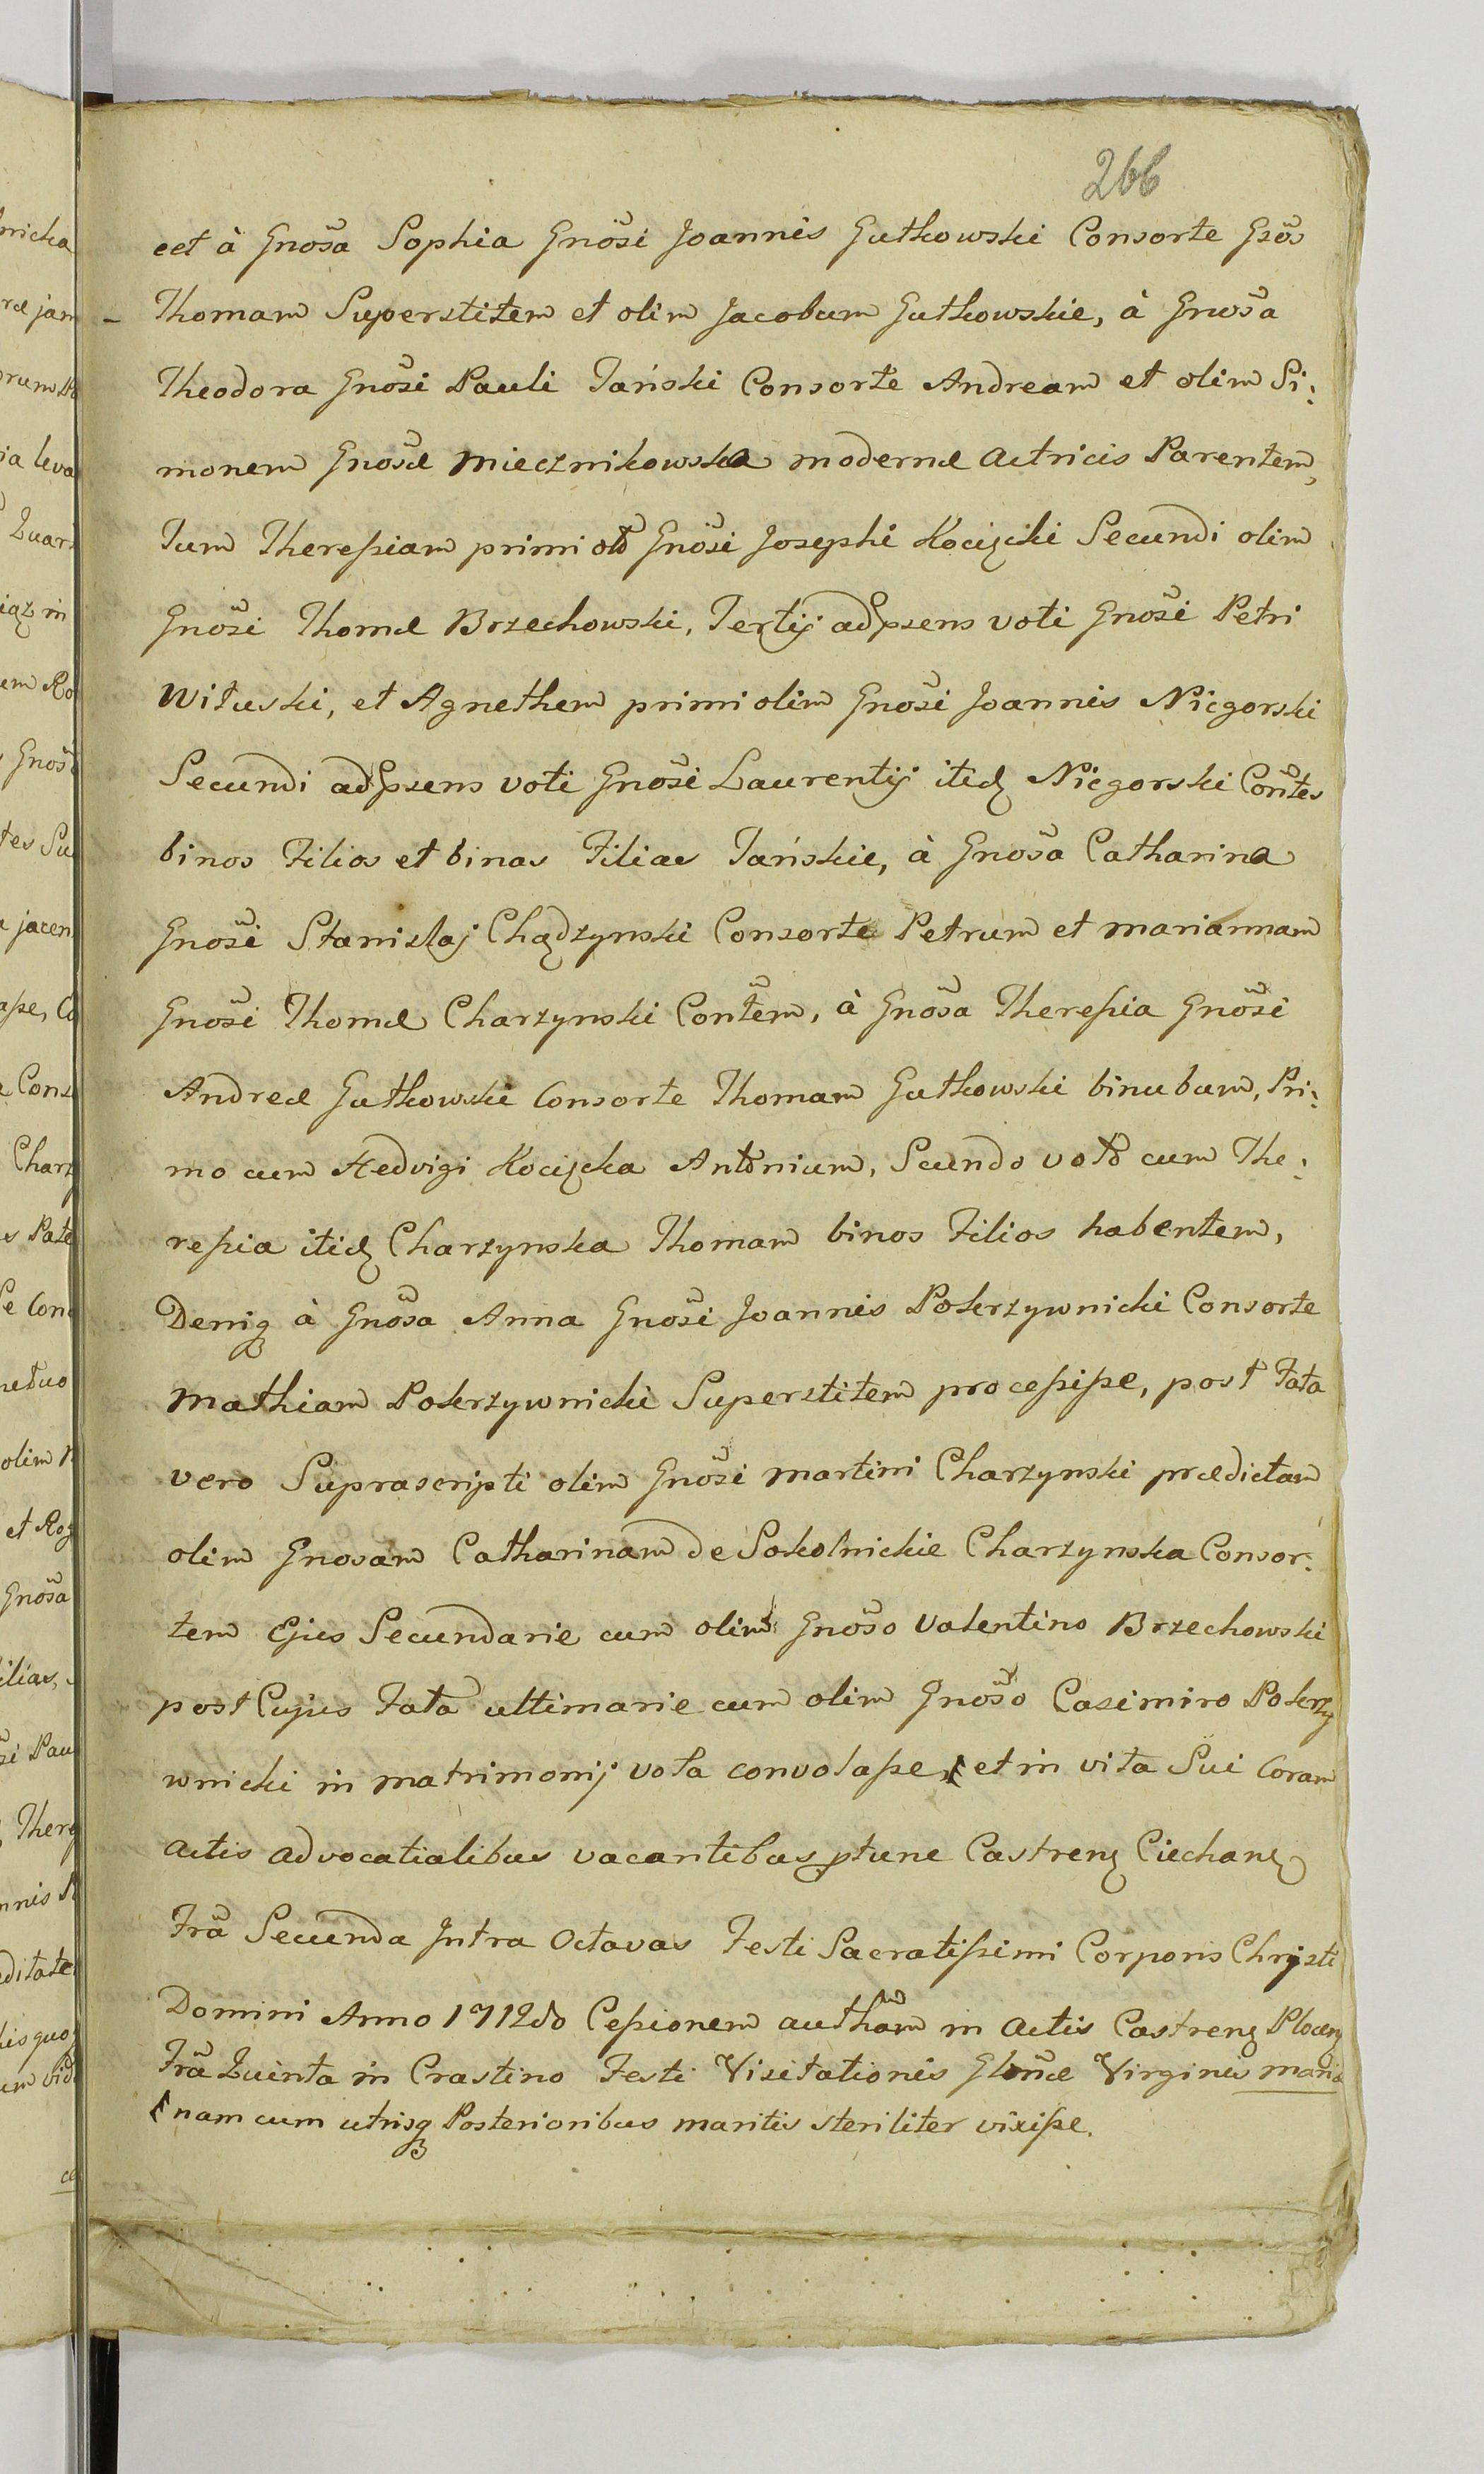 266
eet à Gnosa Sophia Gnosi Joannis Gutkowski Consorte Gsos
Thomam Superstitem et olim Jacobum Gutkowskie, à Gnosa
Theodora Gnosi Pauli Tański Consorte Andream et olim Si:
monem Gnosæ Miecznikowska modernæ Actricis Parentem,
Tum Theresiam primi olim Gnosi Josephi Kocięcki Secundi olim
Gnosi Thomæ Brzechowski, Tertij adpsens voti Gnosi Petri
Wituski, et Agnethem primi olim Gnosi Joannis Niegorski
Secundi adpsens voti Gnosi Laurentij itidꝫ Niegorski Contes
binos Filios et binas Filias Tańskie, à Gnosa Catharina
Gnosi Stanislaj Chądzynski Consorte Petrum et Mariannam
Gnosi Thomæ Charzynski Contem, à Gnosa Theresia Gnosi
Andreæ Gutkowski Consorte Thomam Gutkowski binubum, Pri:
mo cum Hedvigi Kocięcka Antonium, Scundo voto cum The:
resia itidꝫ Charzynska Thomam binos Filios habentem,
Deniqꝫ à Gnosa Anna Gnosi Joannis Pokrzywnicki Consorte
Mathiam Pokrzywnicki Superstitem processisse, post Fata
vero Suprascripti olim Gnosi Martini Charzynski prædictam
olim Gnosam Catharinam de Sokolnickie Charzynska Consor:
tem Ejus Secundarie cum olim Gnoso Valentino Brzechowski
post Cujus Fata ultimarie cum olim Gnoso Casimiro Pokrzy
wnicki in matrimonij vota convolasse, et in vita Sui Coram
Actis Advocatialibus vacantibus ptunc Castrenꝫ Ciechanꝫ
Fra Secunda Intra Octavas Festi Sacratissimi Corporis Christi
Domini Anno 1712do Cessionem autham in Actis Castrenꝫ Plocenꝫ
Fra Quinta in Crastino Festi Visitationis Glonæ Virginis Mariæ
nam cum utrisqꝫ Posterioribus maritis steriliter vixisse.